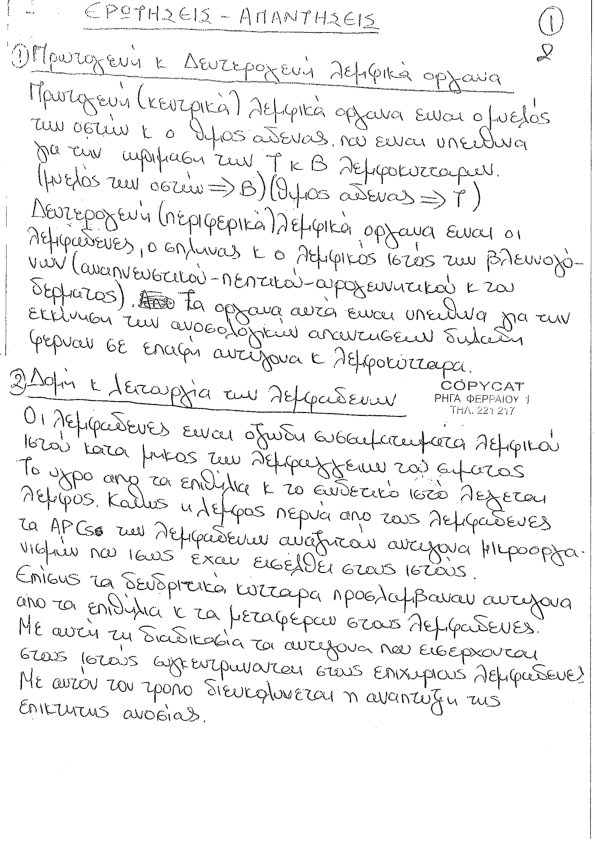 ΕΡΩΤΗΣΕΙΣ - ΑΠΑΝΤΗΣΕΙΣ
①
2
① Πρωτογενή κ Δευτερογενή λεμφικά οργανα
Πρωτογενή (κεντρικά) λεμφικά οργανα ειναι ο μυελός
των οστών κ ο θυμος αδενας. που ειναι υπευθυνα
για την ωριμαση των Τ κ Β λεμφοκυτταρων.
(μυελός των οστών => Β) (θυμος αδενας => Τ)
Δευτερογενή (περιφερικά) λεμφικά οργανα ειναι οι
λεμφαδενες, ο σπληνας κ ο λεμφικός ιστός των βλεννογό-
νων (αναπνευστικού-πεπτικού-ουρογεννητικού κ του
δερματος). Τα οργανα αυτά ειναι υπευθυνα για την
εκκίνηση των ανοσολογικών απαντησεων δηλαδη
φερνουν σε επαφή αντιγονα κ λεμφοκύτταρα.
② Δομή κ λειτουργία των λεμφαδενων
COPYCAT
ΡΗΓΑ ΦΕΡΡΑΙΟΥ 1
ΤΗΛ. 221 217
Οι λεμφαδενες ειναι οζωδη συσσωματωματα λεμφικού
ιστού κατα μηκος των λεμφαγγειων του σωματος
Το υγρο απο τα επιθηλια κ το συνδετικό ιστό λεγεται
λεμφος. Καθως η λεμφος περνά απο τους λεμφαδενες
τα APCs των λεμφαδενων αναζητούν αντιγονα μικροοργα-
νισμών που ισως εχουν εισελθει στους ιστούς.
Επισης τα δενδριτικά κυτταρα προσλαμβανουν αντιγονα
απο τα επιθηλια κ τα μεταφερουν στους λεμφαδενες.
Με αυτή τη διαδικασία τα αντιγονα που εισερχονται
στους ιστούς συγκεντρωνονται στους επιχωριους λεμφαδενες
Με αυτόν τον τροπο διευκολυνεται η αναπτυξη της
επικτητης ανοσίας.